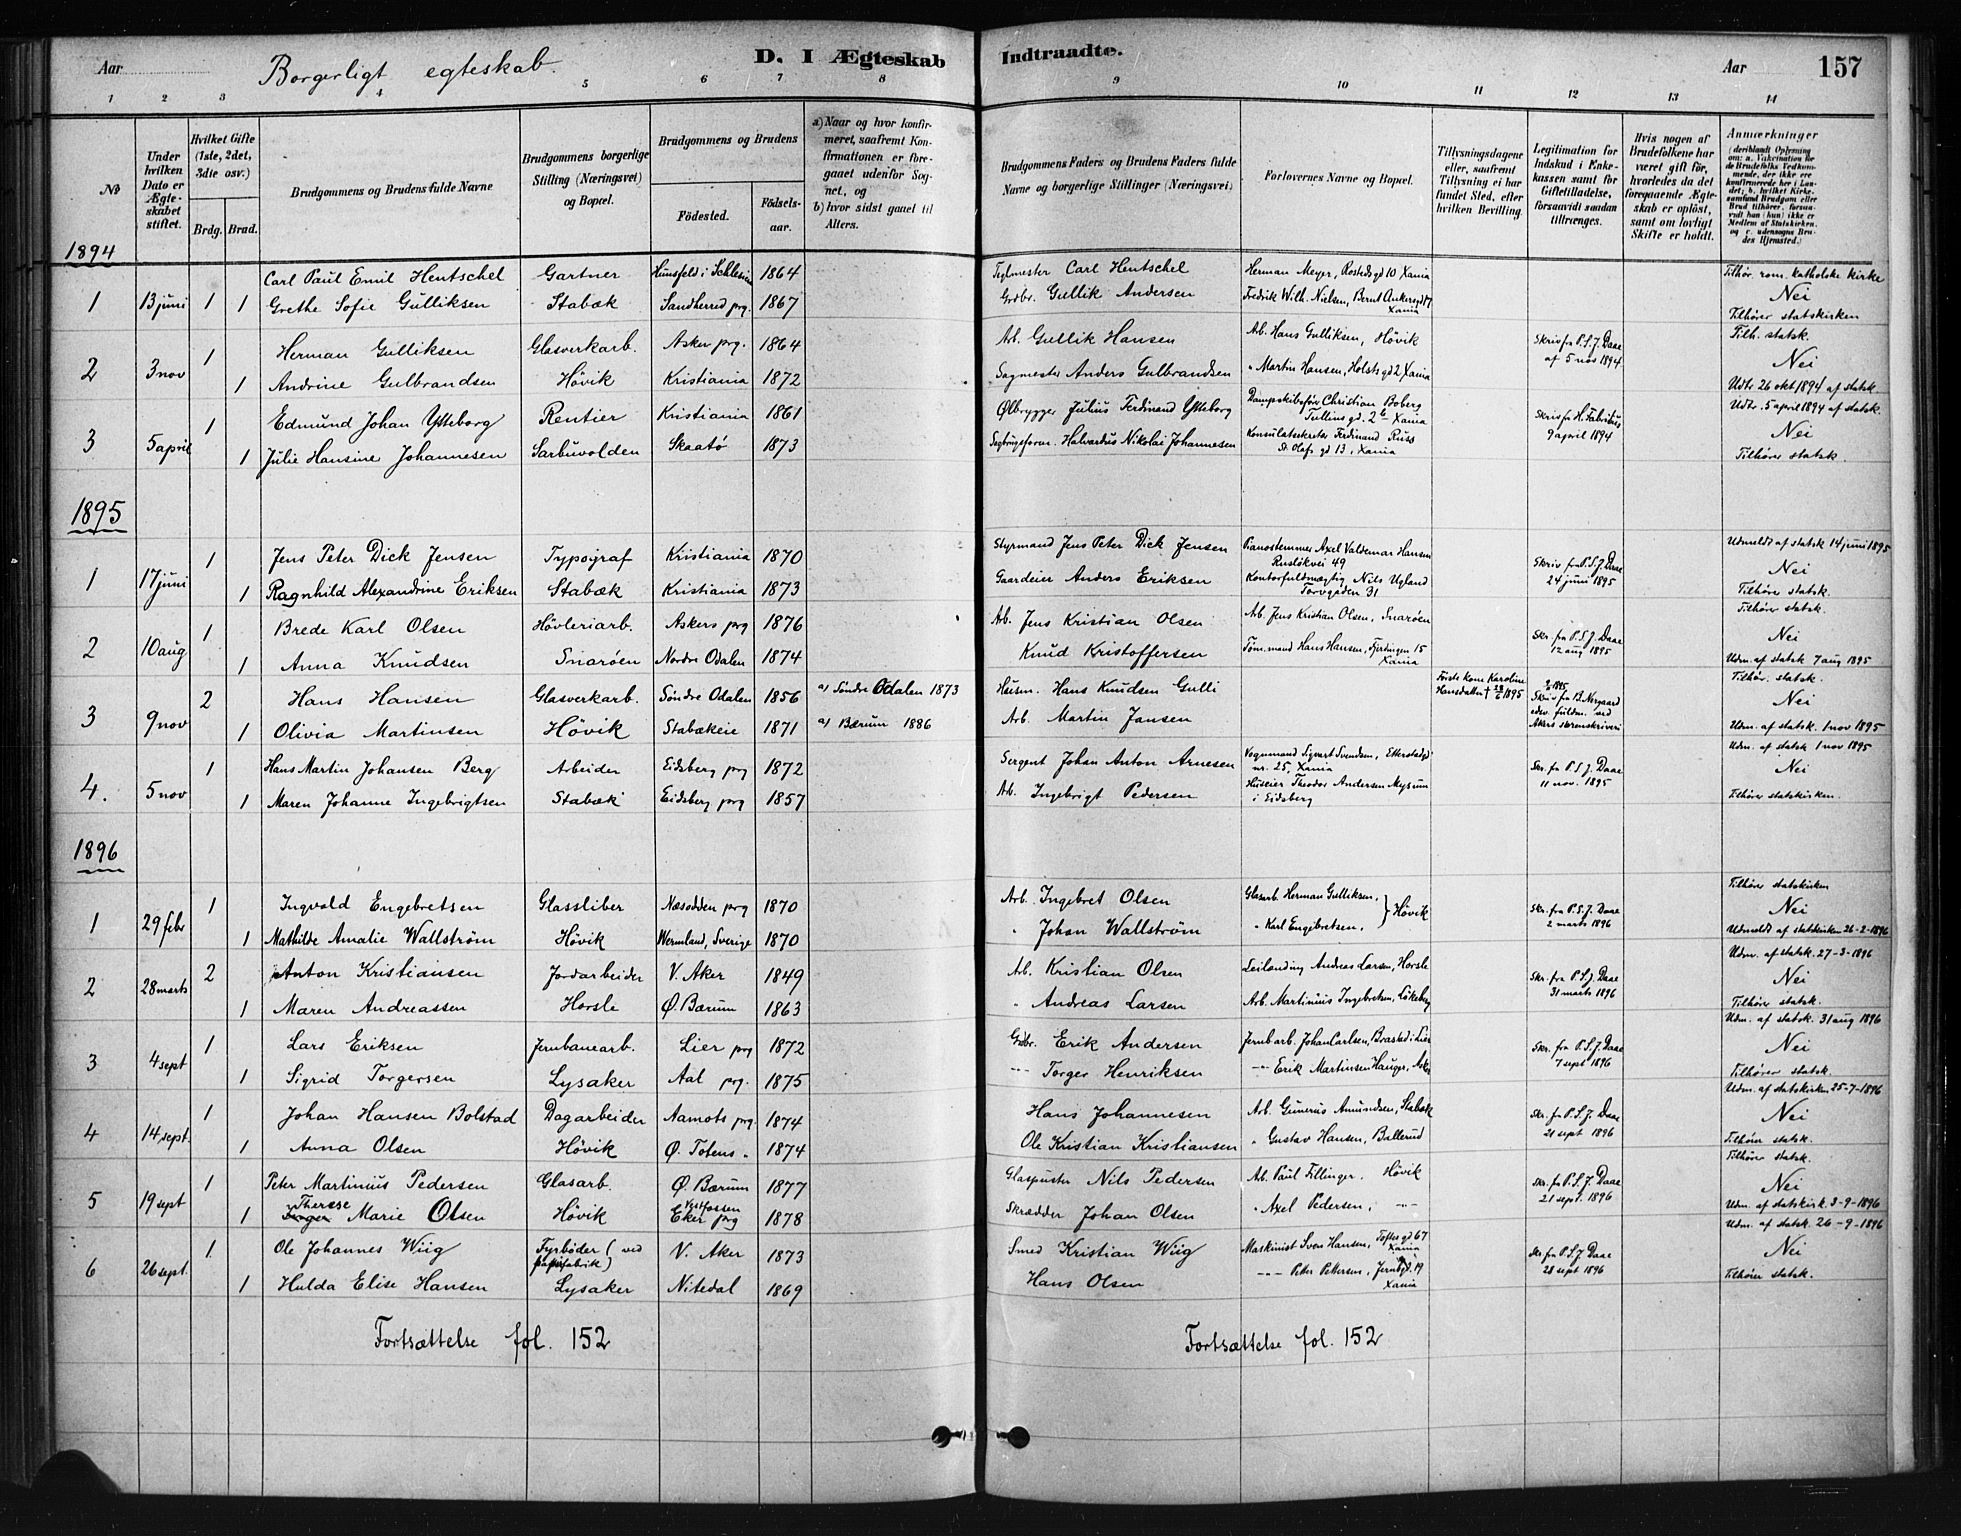 Aar
Borgerligt egteskab.
D. I Ægteskab
Indtraadte.
Aar
157
1 2 3 4 5 6 7 8 9 10 11 12 13 14
No
Under hvilken Dato er Ægteskabet stiftet.
Hvilket Gifte (1ste, 2det, 3die osv.)
Brdg. Brud.
Brudgommens og Brudens fulde Navne
Brudgommens borgerlige Stilling (Næringsvei) og Bopæl.
Brudgommens og Brudens
Födested.
Födselsaar.
a) Naar og hvor konfirmeret, saafremt Konfirmationen er foregaaet udenfor Sognet, og
b) hvor sidst gaaet til Alters.
Brudgommens Faders og Brudens Faders fulde Navne og borgerlige Stillinger (Næringsvei)
Forlovernes Navne og Bopæl.
Tillysningsdagene eller, saafremt Tillysning ei har fundet Sted, efter hvilken Bevilling.
Legitimation for Indskud i Enkekassen samt for Giftetilladelse, forsaavidt saadan tiltrænges.
Hvis nogen af Brudefolkene har været gift før, hvorledes da det foregaaende Ægteskab er oplöst, samt om lovligt Skifte er holdt.
Anmærkninger
1894
Carl Paul Emil Hentschel Gartner Hunsfeld i Schlesien 1864 Teglmester Carl Hentschel Herman Meyer, Rosteds gd 10 Xania Tilhør. rom. katholske kirke
1 13 juni 1 1 Grethe Sofie Gulliksen Stabæk Sandherred prg. 1867 Grdbr. Gullik Andersen Fredrik Wilh. Nielsen, Bernt Ankersgd 17 Xania Nei
Tilhører statskirken
1 Herman Gulliksen Glasverkarb. Asker prg. 1864 Arb. Gullik Hansen Arb. Hans Gulliksen, Høvik Skriv fra P.S.J. Daae af 5 nov 1894 Tilh. statsk.
2 3 nov 1 Andrine Gulbrandsen Høvik Kristiania 1872 Sagmester Anders Gulbrandsen " Martin Hansen, Holsts gd 2, Xania Nei
Udtr. 26 okt 1894 af statsk.
1 Edmund Johan Ytteborg Rentier Kristiania 1861 Ølbrygger Julius Ferdinand Ytteborg Dampskibsfører Christian Boberg Tullins gd. 2 b Xania Skriv fra H. Fabritius 9 april 1894 Udtr. 5 april 1894 af statsk.
3 5 april 1 Julie Hansine Johannesen Sarbuvolden Skaatö 1873 Halvardus Nikolai Johannesen Konsulatsekretær Ferdinand Russ St. Olafs gd 13, Xania Nei
Tilhører statsk.
1895
1 Jens Peter Dick Jensen Typograf Kristiania 1870 Styrmand Jens Peter Dick Jensen Pianostemmer Axel Valdemar Hansen Rusløkvei 49 Skriv fra P.S.J. Daae 24 juni 1895 Udmeldt af statsk 14 juni 1895
1 17 juni 1 Ragnhild Alexandrine Eriksen Stabæk Kristiania 1873 Gaardeier Anders Eriksen Kontorfuldmægtig Nils Ugland Torvgaden 31 Nei
Tilhörer statsk.
1 Brede Karl Olsen Høvleriarb. Askers prg 1876 Arb. Jens Kristian Olsen Arb. Jens Kristian Olsen, Snarøen Skr. fra P.S.J. Daae 12 aug 1895 Tilhører statsk.
2 10 aug 1 Anna Knudsen Snarøen Nordre Odalen 1874 Knud Kristoffersen Tøm.mand Hans Hansen, Fjerdingen 15 Xania Nei
Udm. af statsk 7 aug 1895
2 Hans Hansen Glasverkarb. Söndre Odalen 1856 a) Söndre Odalen 1873 Husm. Hans Knudsen Gulli Første kone Karoline Hansdatter † 28/6 1895 Skriv fra B. Nergaard edsv. fuldm. ved Akers sorenskriveri Tilhör. statsk.
3 9 nov 1 Olivia Martinsen Høvik Stabækeie 1871 a) Bærum 1886 Arb. Martin Jansen Nei
Udm. af statsk. 1 nov 1895
1 Hans Martin Johansen Berg Arbeider Eidsberg prg 1872 Sergent Johan Anton Arnesen Vognmand Sigvart Svendsen, Etterstadgd nr. 25, Xania Skr. fra P.S.J. Daae 11 nov. 1895 Udm. af statsk 1 nov 1895
4. 5 nov 1 Maren Johanne Ingebrigtsen Stabæk Eidsberg prg 1857 Arb. Ingebrigt Pedersen Huseier Theodor Andersen Mysum i Eidsberg Nei
Tilhører statskirken.
1896
1 Ingvald Engebretsen Glassliber Næsodden prg 1870 Arb. Ingebret Olsen Glasarb. Herman Gulliksen, } Høvik Skr. fra P.S.J. Daae 2 marts 1896 Tilhører statskirken
1 29 febr 1 Mathilde Amalie Wallström Høvik Wermland, Sverige 1870 " Johan Wallström " Karl Engebretsen, Nei
Udmeldt af statskirken 26-2-1896
2 Anton Kristiansen Jordarbeider V. Aker 1849 Arb. Kristian Olsen Leilænding Andreas Larsen, Horsle Skr. fra P.S.J. Daae 31 marts 1896 Udm. af statsk. 27-3-1896
2 28 marts 1 Maren Andreassen Horsle Ø. Bærum 1863 " Andreas Larsen Arb. Martinius Ingebretsen, Løkeberg Nei
Tilhører statsk.
1 Lars Eriksen Jernbanearb. Lier prg 1872 Grdbr. Erik Andersen Jernb arb. Johan Carlsen, Brastad i Lier Skr. fra P.S.J. Daae 7 sept 1896 Udm. af statsk. 31 aug 1896
3 4 sept 1 Sigrid Torgersen Lysaker Aal prg. 1875 -"- Torger Henriksen -"- Erik Martinsen Hauger, Asker Nei
Tilhører statsk.
1 Johan Hansen Bolstad Dagarbeider Aamots prg. 1874 Hans Johannesen Arb. Gunerius Amundsen, Stabæk Skr. fra P.S.J. Daae 21 sept 1896 Udm. af statskirken 25-7-1896
4 14 sept. 1 Anna Olsen Høvik Ø. Totens " 1874 Ole Kristian Kristiansen " Gustav Hansen, Ballerud Nei
Tilhører statsk.
1 Peter Martinius Pedersen Glasarb. Ø. Bærum 1877 Glaspuster Nils Pedersen Arb. Paul Fillinger, Høvik Skr. fra P.S.J. Daae 21 sept. 1896 Tilhører statsk.
5 19 sept 1 Therese Marie Olsen Høvik Vestfossen Eker prg 1878 Skrædder Johan Olsen " Axel Pedersen, -"- Nei
Udm. af statskirk. 3-9-1896
1 Ole Johannes Wiig Fyrbøder (ved papirfabrik) V. Aker 1873 Smed Kristian Wiig Maskinist Sven Hansen, Toftes gd 67 Xania Skr fra P.S.J Daae 28 sept 1896 Udm. af statsk. 26-9-1896
6 26 sept. 1 Hulda Elise Hansen Lysaker Nitedal 1869 Hans Olsen -"- Petter Pettersen, Jernbgd. 19 Xania Nei
Tilhører statsk.
Fortsættelse fol. 152
Fortsættelse fol. 152